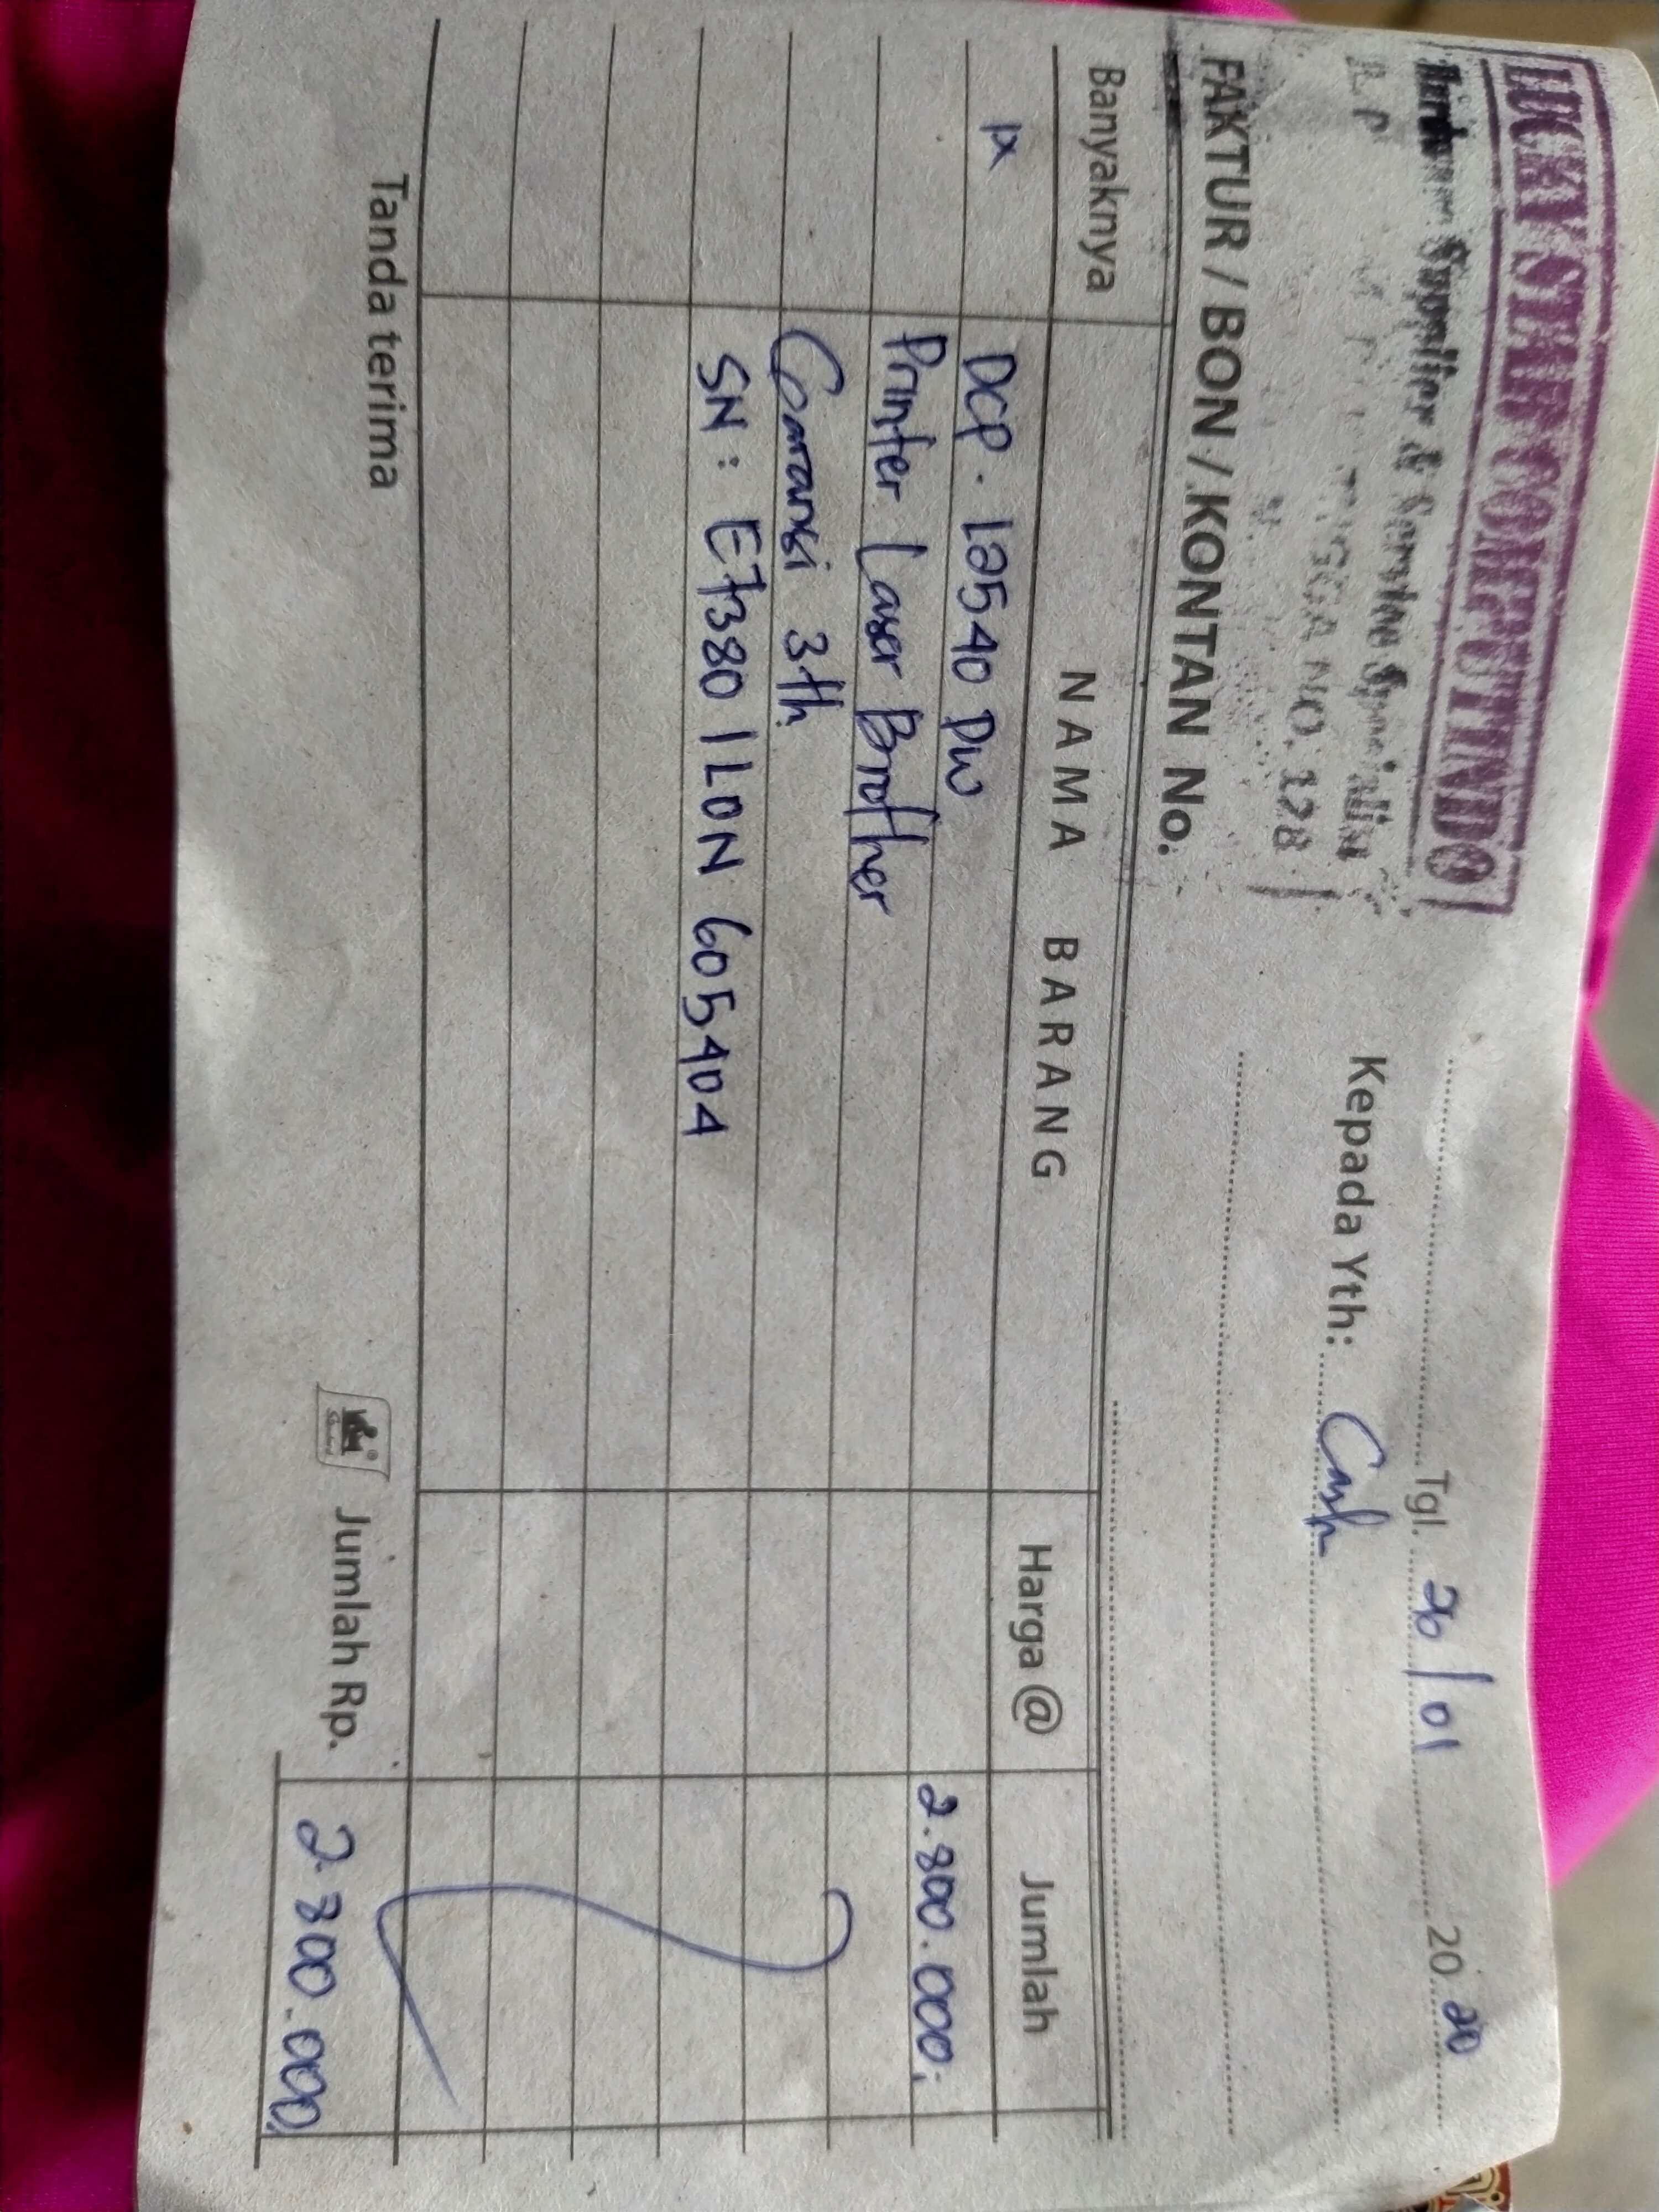 LUCKY STAR COMPUTINDO
Hardware Supplier & Service Specialist
NO. 128
Tgl. 26/01 20 20
Kepada Yth: Cash
FAKTUR / BON / KONTAN No.
Banyaknya NAMA BARANG Harga @ Jumlah
1x DCP. L2540 DW 2.800.000,-
Printer Laser Brother
Garansi 3th
SN : E7380 1 L0N 605404
Tanda terima Jumlah Rp. 2.800.000,